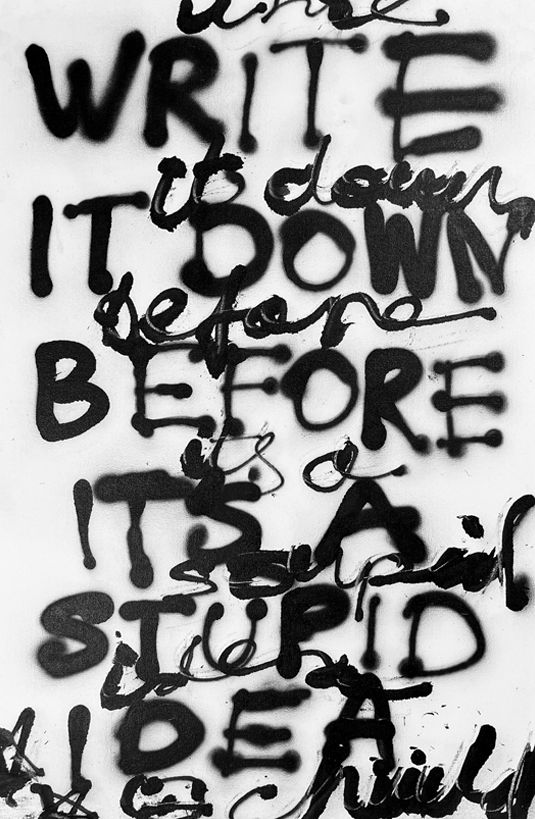 WRITE
it down
IT DOWN
before
BEFORE
its a
ITS A
stupid
STUPID
IDEA